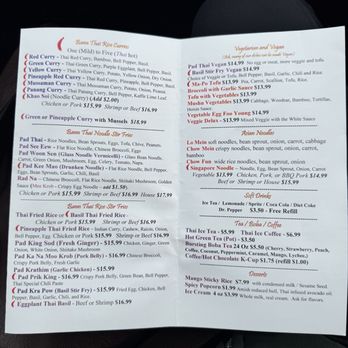 Baan Thai Rice Curries
One (Mild) to Five (Thai hot)
Red Curry - Thai Red Curry, Bamboo, Bell Pepper, Basil
Green Curry - Thai Green Curry, Purple Eggplant, Bell Pepper, Basil
Yellow Curry - Thai Yellow Curry, Potato, Yellow Onion, Dry Onion
Pineapple Red Curry - Thai Red Curry, Pineapple, Bell Pepper, Basil
Mussaman Curry - Thai Mussaman Curry, Potato, Onion, Peanut
Panang Curry - Thai Panang Curry, Bell Pepper, Kaffir Lime Leaf
Khao Soi (Noodle Curry) (Add $2.00)
Chicken or Pork $15.99 Shrimp or Beef $16.99
Green or Pineapple Curry with Mussels $18.99
Baan Thai Noodle Stir Fries
Pad Thai - Rice Noodles, Bean Sprouts, Eggs, Tofu, Chive, Peanuts
Pad See Eew - Flat Rice Noodle, Chinese Broccoli, Eggs
Pad Woon Sen (Glass Noodle Vermicelli) - Glass Bean Noodle,
Carrot, Green Onion, Mushroom, Egg, Celery, Tomato, Napa
Pad Kee Mao (Drunken Noodle) - Flat Rice Noodle, Bell Pepper,
Eggs, Bean Sprouts, Garlic, Chili, Basil
Rad Na - Chinese Broccoli, Flat Rice Noodle, Shiitake Mushroom, Golden
Sauce (Mee Krob - Crispy Egg Noodle - add $1.50)
Chicken or Pork $15.99 Shrimp or Beef $16.99 House $17.99
Baan Thai Rice Stir Fries
Thai Fried Rice or Basil Thai Fried Rice
Chicken or Pork $15.99 Shrimp or Beef $16.99
Pineapple Thai Fried Rice - Indian Curry, Cashew, Raisin, Onion,
Bell Pepper, Egg Chicken or Pork $15.99 Shrimp or Beef $16.99
Pad King Sod (Fresh Gingery) - $15.99 Chicken, Ginger, Green
Onion, White Onion, Shiitake Mushroom
Pad Ka Na Moo Krob (Pork Belly) - $16.99 Chinese Broccoli,
Crispy Pork Belly, Fresh Garlic
Pad Krathim (Garlic Chicken) - $15.99
Pad Prik King - $16.99 Crispy Pork Belly, Green Bean, Bell Pepper,
Thai Special Chili Paste
Pad Kra Pow (Basil Stir Fry) - $15.99 Fried Egg, Chicken, Bell
Pepper, Basil, Garlic, Chili, and Rice.
Eggplant Thai Basil - Beef or Shrimp $16.99
Vegetarian and Vegan
Pad Thai Vegan $14.99 No egg or meat, more veggie and tofu
Basil Stir Fry Vegan $14.99
Choice of Veggie or Tofu, Bell Pepper, Basil, Garlic, Chili and Rice.
Ma-Po Tofu $13.99 Pea, Carrot, Scallion, Tofu, Rice
Broccoli with Garlic Sauce $13.99
Tofu with Vegetables $13.99
Mushu Vegetables $13.99 Cabbage, Woodear, Bamboo, Tortillas,
Hoisin Sauce
Vegetable Egg Foo Young $14.99
Veggie Delux - $13.99 Mixed Veggie with the White Sauce
Asian Noodles
Lo Mein soft noodles, bean sprout, onion, carrot, cabbage
Chow Mein crispy noodles, bean sprout, onion,
bamboo
Chow Fun wide rice noodles, bean sprout, onion
Singapore Noodle - Noodle, Egg, Bean Sprout, Onion, Carrot
Vegetable $13.99 Chicken, Pork, or BBQ Pork $14.99
Shrimp or Beef or House $15.99
Soft Drinks
Ice Tea / Lemonade / Sprite / Coca Cola / Diet Coke
Dr. Pepper $3.50 - Free Refill
Tea / Boba / Coffee
Thai Ice Tea - $5.99 Thai Ice Coffee - $6.99
Hot Green Tea (Pot) - $3.50
Bursting Boba Tea 24 Oz $5.50 (Cherry, Strawberry, Peach,
Coffee, Coconut, Peppermint, Caramel, Mango, Lychee.)
Coffee/Hot Chocolate K-Cup $1.75 (refill $1.00)
Desserts
Mango Sticky Rice $7.99 with condensed milk / Sesame Seed.
Spicy Popcorn $1.99
Ice Cream 4 oz $3.99 Whole milk, real cream. Ask for flavors.